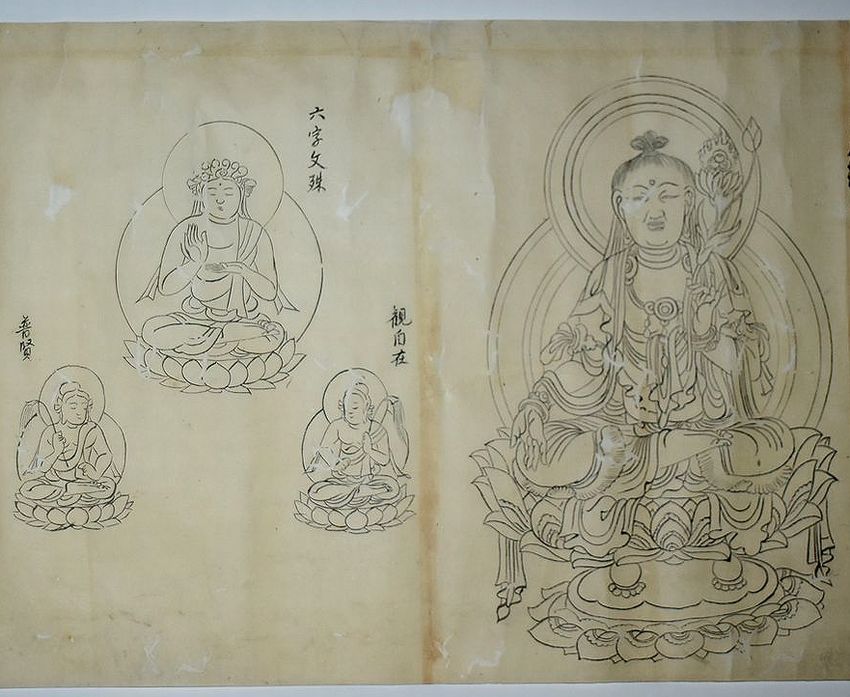 六字文殊
觀自在
普賢